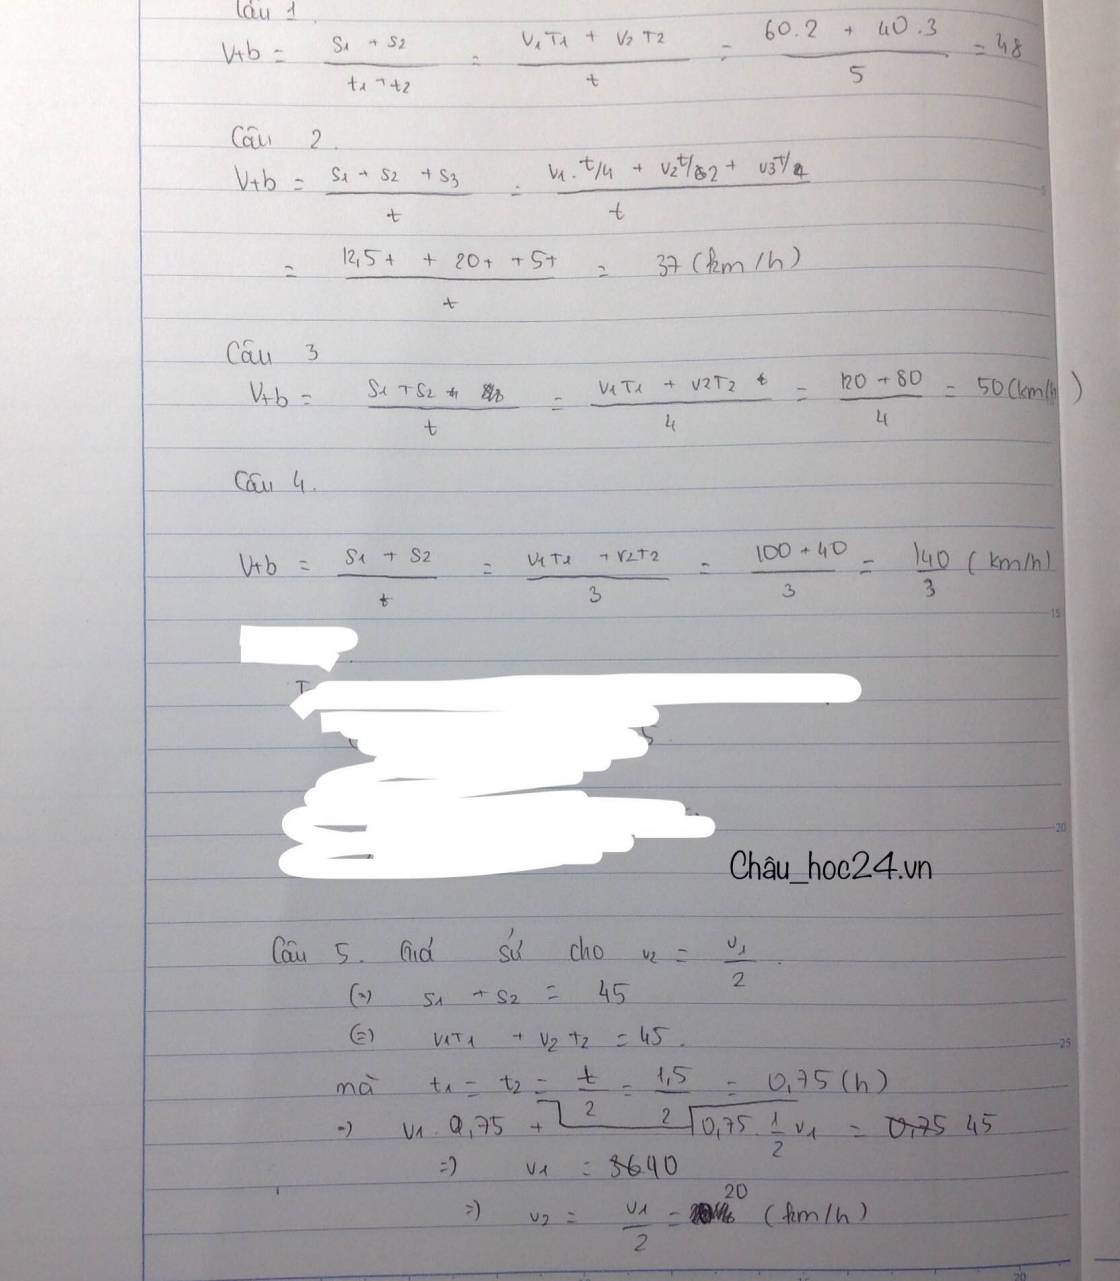 Câu 1
V+b = S1 + S2 / t1 + t2 = V1T1 + V2T2 / t = 60.2 + 40.3 / 5 = 48
Câu 2.
V+b = S1 + S2 + S3 / t = V1.t/4 + V2t/2 + V3t/4 / t
= 12,5t + 20t + 5t / t = 37 (km/h)
Câu 3
V+b = S1 + S2 / t = V1T1 + V2T2 / 4 = 120 + 80 / 4 = 50 (km/h)
Câu 4.
V+b = S1 + S2 / t = V1T1 + V2T2 / 3 = 100 + 40 / 3 = 140 / 3 (km/h)
15
20
Châu_hoc24.vn
Câu 5. Giả sử cho v2 = v1 / 2.
(=) S1 + S2 = 45
(=) V1T1 + V2t2 = 45.
25
mà t1 = t2 = t / 2 = 1,5 / 2 = 0,75 (h)
=) V1. 0,75 + 0,75. 1/2 V1 = 45
=) V1 = 40
=) V2 = V1 / 2 = 20 (km/h)